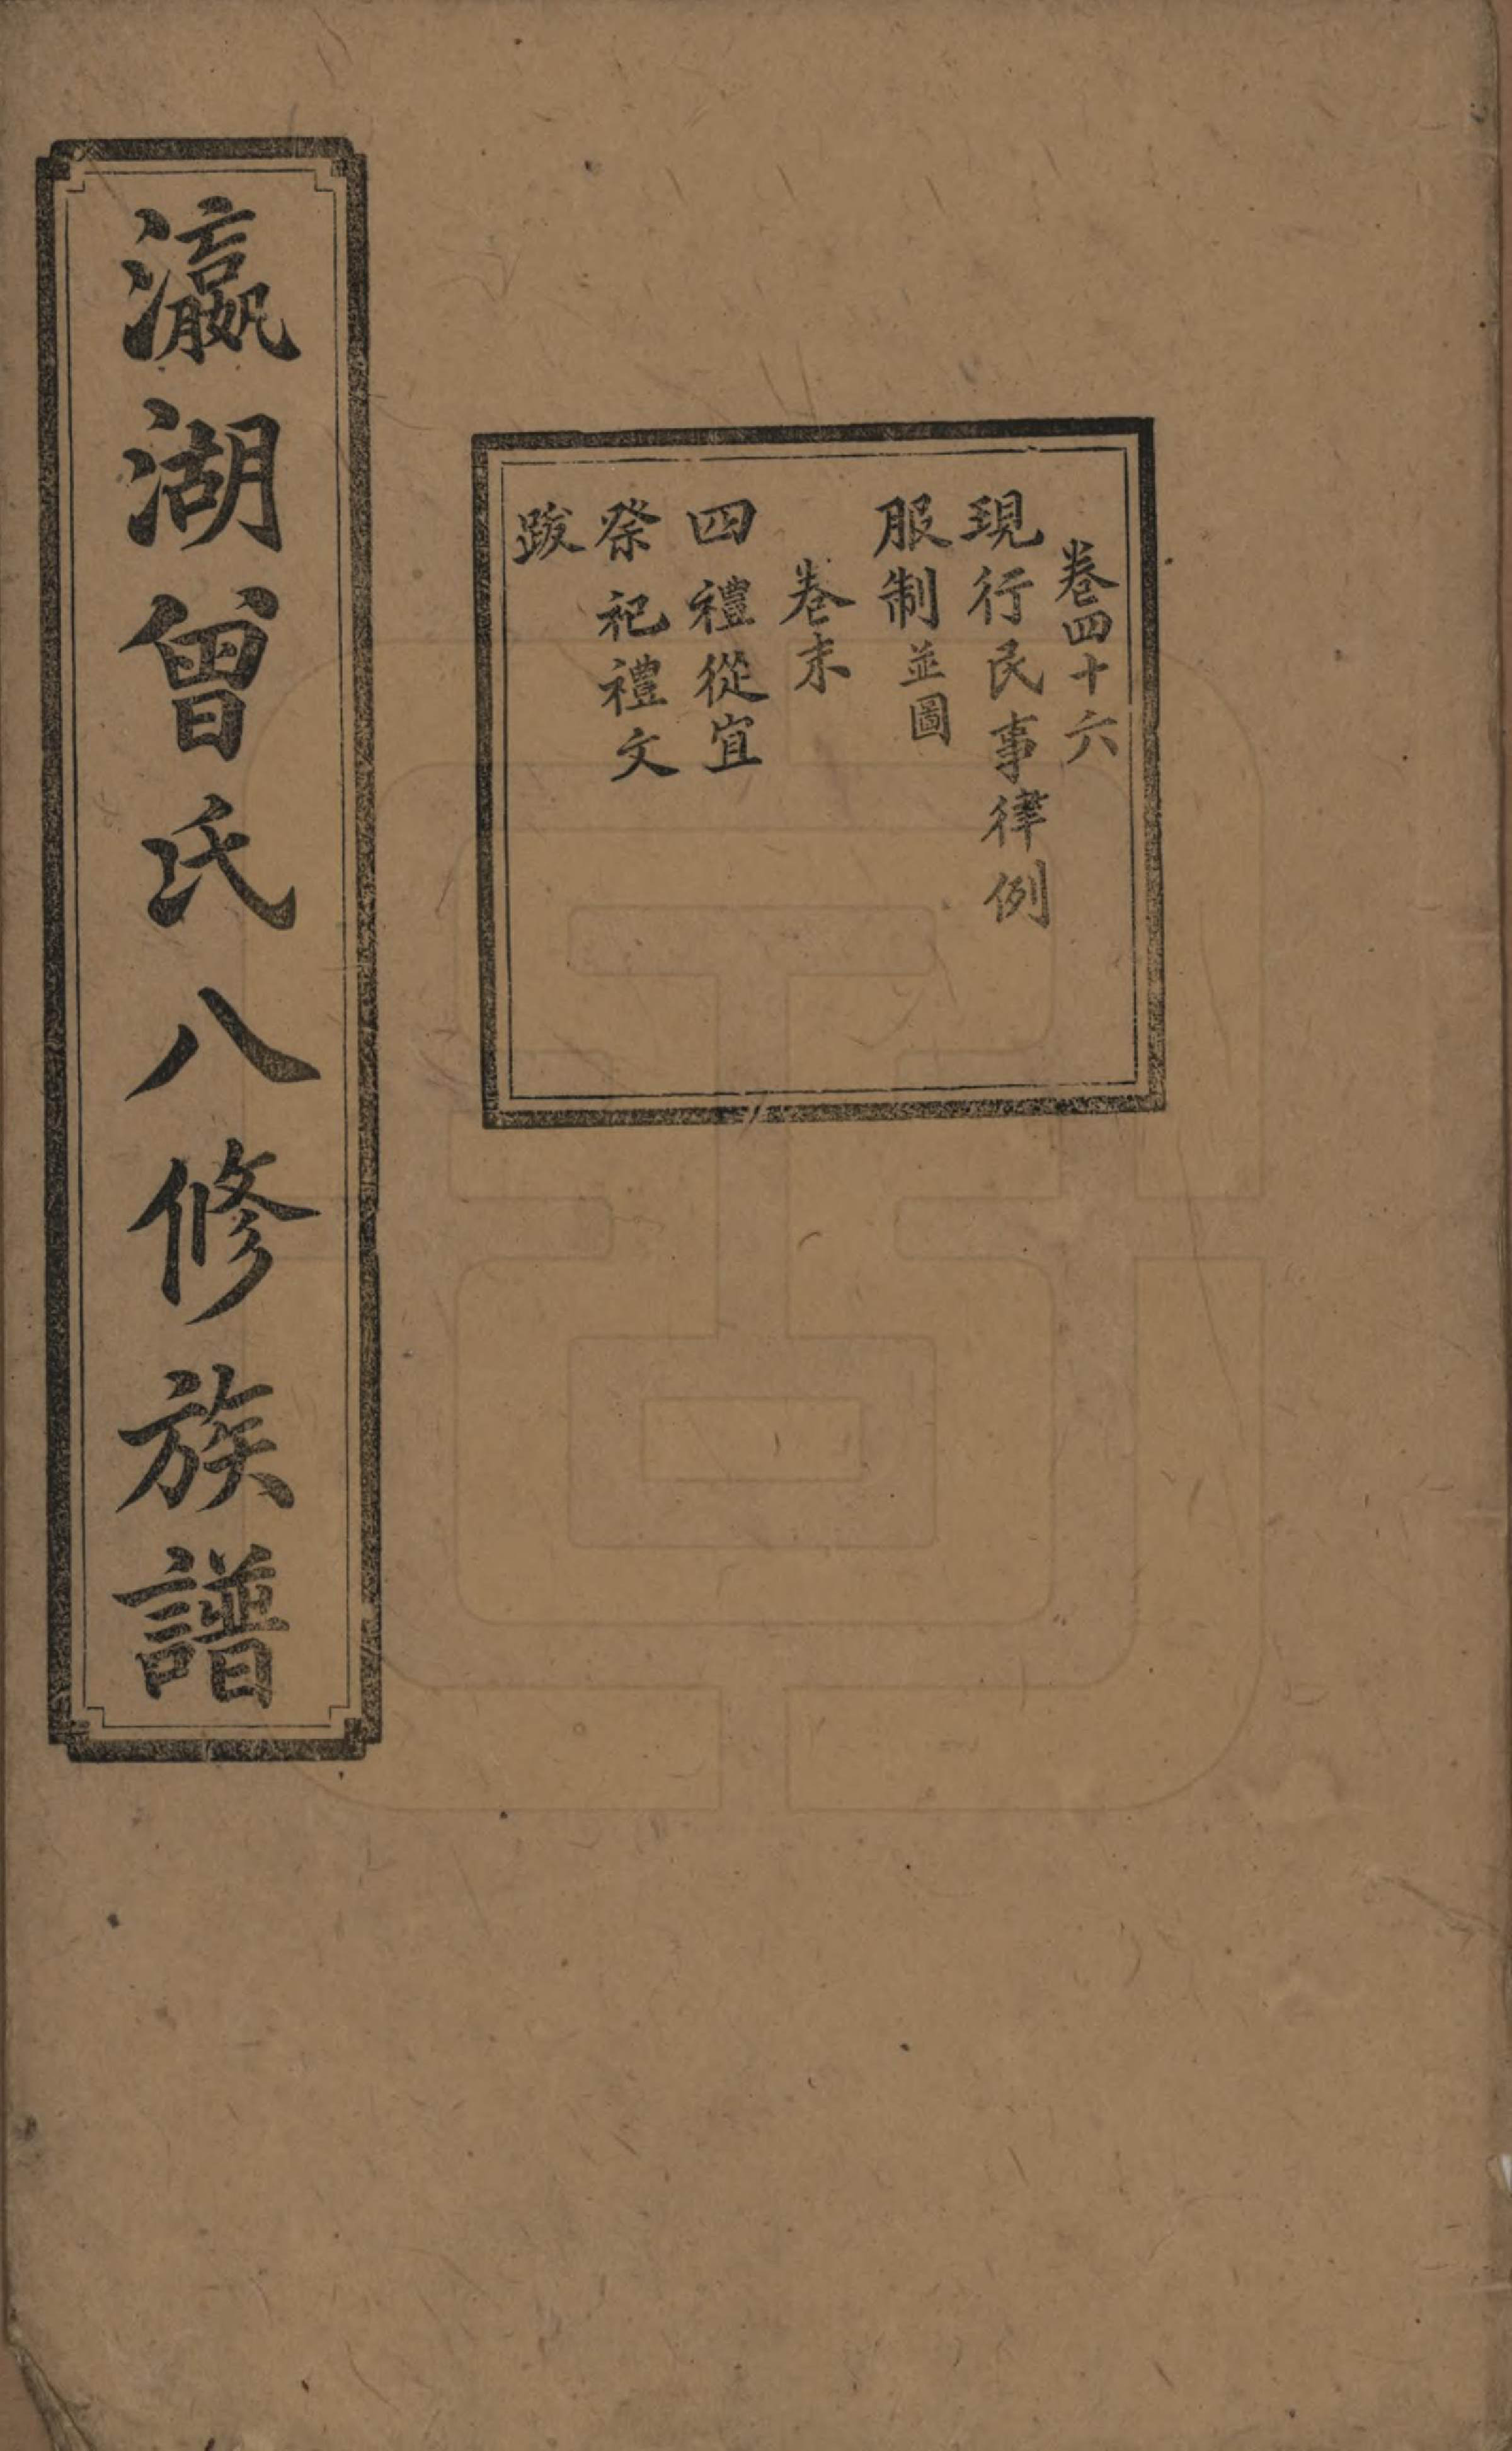 瀛湖曾氏八修族譜
卷四十六
現行民事律例
服制並圖
卷末
四禮從宜
祭祀禮文
跋